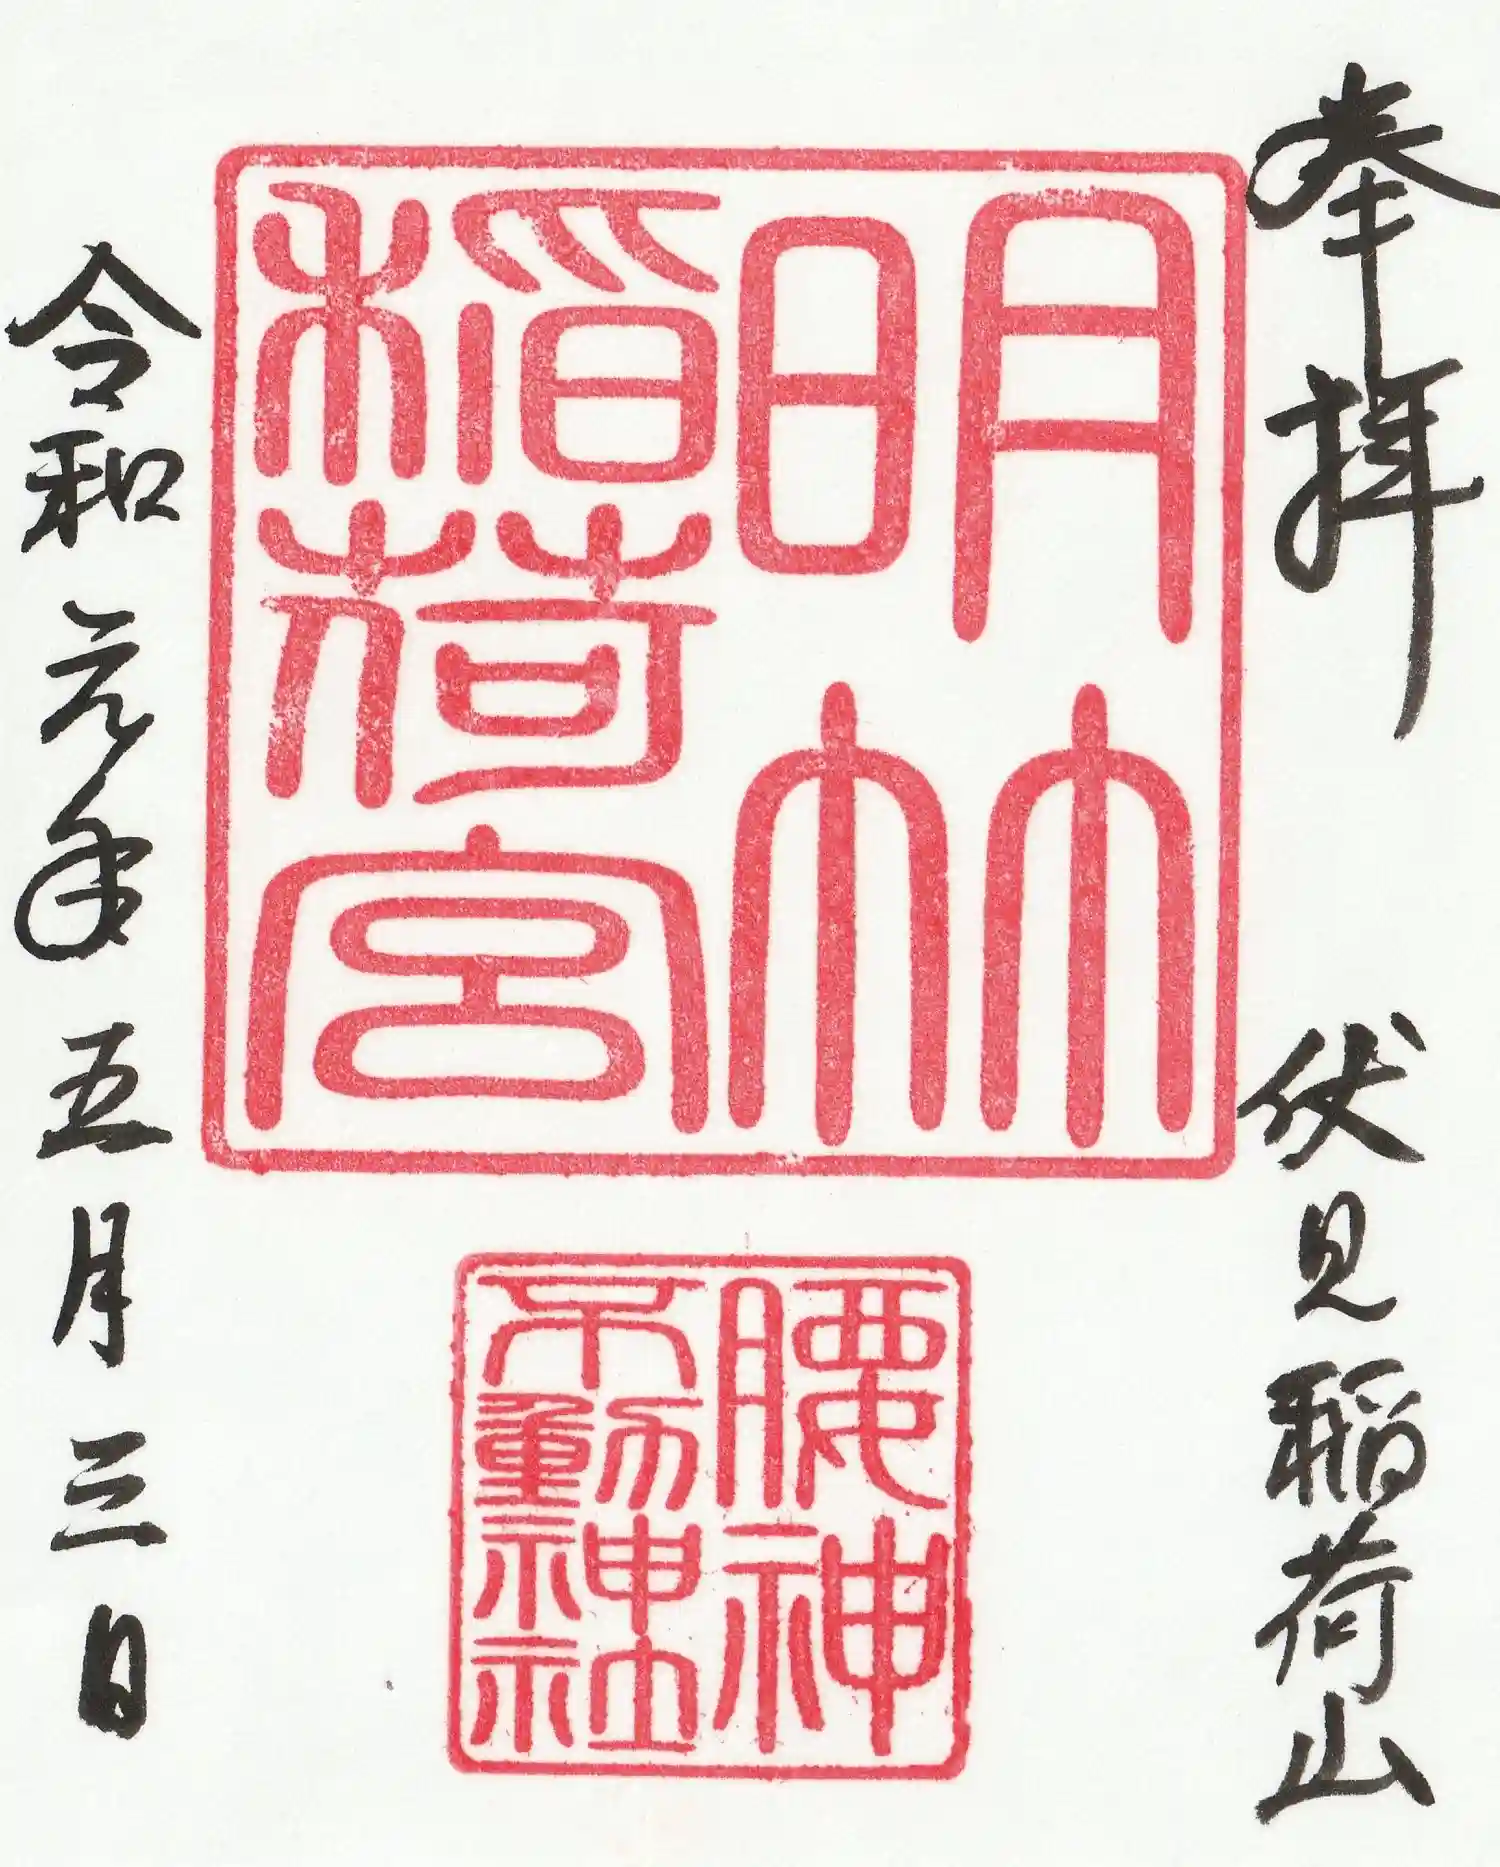 奉拝
伏見稲荷山
明竹
稲荷宮
腰神
不動神社
令和元年五月三日